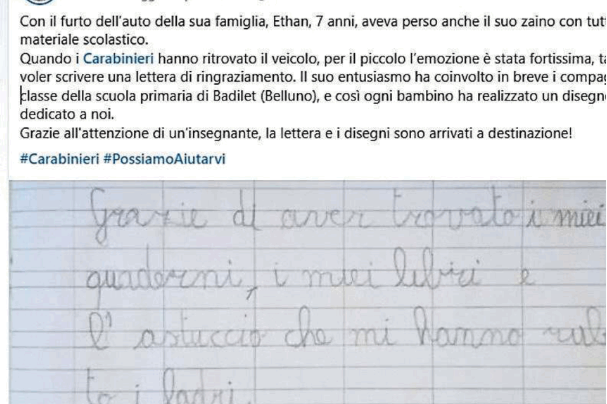 Con il furto dell'auto della sua famiglia, Ethan, 7 anni, aveva perso anche il suo zaino con
materiale scolastico.
Quando i Carabinieri hanno ritrovato il veicolo, per il piccolo l'emozione è stata fortissima,
voler scrivere una lettera di ringraziamento. Il suo entusiasmo ha coinvolto in breve i
classe della scuola primaria di Badilet (Belluno), e così ogni bambino ha realizzato un
dedicato a noi.
Grazie all'attenzione di un'insegnante, la lettera e i disegni sono arrivati a destinazione!
#Carabinieri #PossiamoAiutarvi
Grazie di aver trovato i miei
quaderni, i miei libri e
l'astuccio che mi hanno rub
to i ladri.